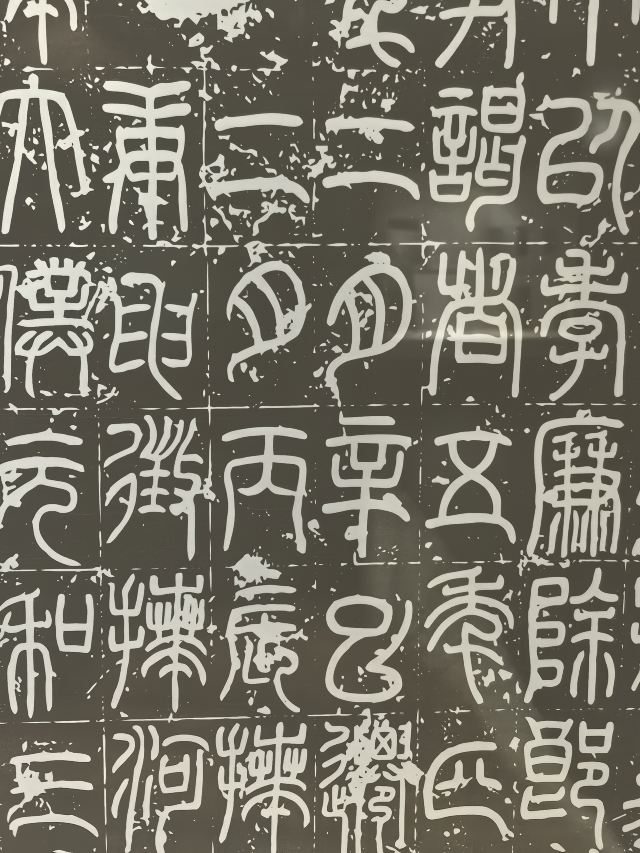 以孝廉除郎
謁者五年正
二月辛巳遷
二月丙辰拜
庚申徵拜河
太僕元和三